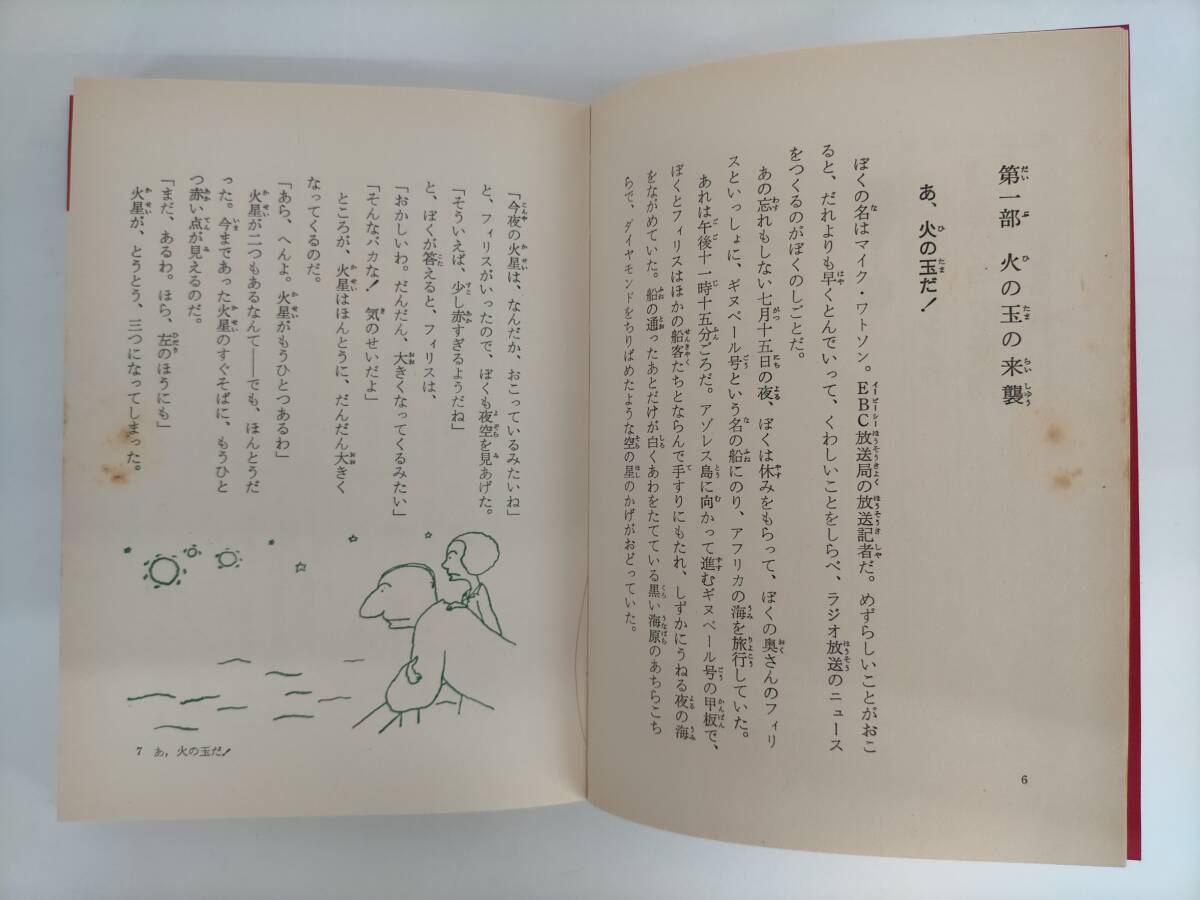 第一部 火の玉の来襲
あ、火の玉だ！
ぼくの名はマイク・ワトソン。EBC放送局の放送記者だ。めずらしいことがおこ
ると、だれよりも早くとんでいって、くわしいことをしらべ、ラジオ放送のニュース
をつくるのがぼくのしごとだ。
あの忘れもしない七月十五日の夜、ぼくは休みをもらって、ぼくの奥さんのフィリ
スといっしょに、ギヌベール号という名の船にのり、アフリカの海を旅行していた。
あれは午後十一時十五分ごろだ。アゾレス島に向かって進むギヌベール号の甲板で、
ぼくとフィリスはほかの船客たちとならんで手すりにもたれ、しずかにうねる夜の海
をながめていた。船の通ったあとだけが白くあわをたてている黒い海原のあちらこち
らで、ダイヤモンドをちりばめたような空の星のかげがおどっていた。
6
「今夜の火星は、なんだか、おこっているみたいね」
と、フィリスがいったので、ぼくも夜空を見あげた。
「そういえば、少し赤すぎるようだね」
と、ぼくが答えると、フィリスは、
「おかしいわ。だんだん、大きくなってくるみたい」
「そんなバカな！ 気のせいだよ」
ところが、火星はほんとうに、だんだん大きく
なってくるのだ。
「あら、へんよ。火星がもうひとつあるわ」
火星が二つもあるなんて――でも、ほんとうだ
った。今まであった火星のすぐそばに、もうひと
つ赤い点が見えるのだ。
「まだ、あるわ。ほら、左のほうにも」
火星が、とうとう、三つになってしまった。
7 あ，火の玉だ！